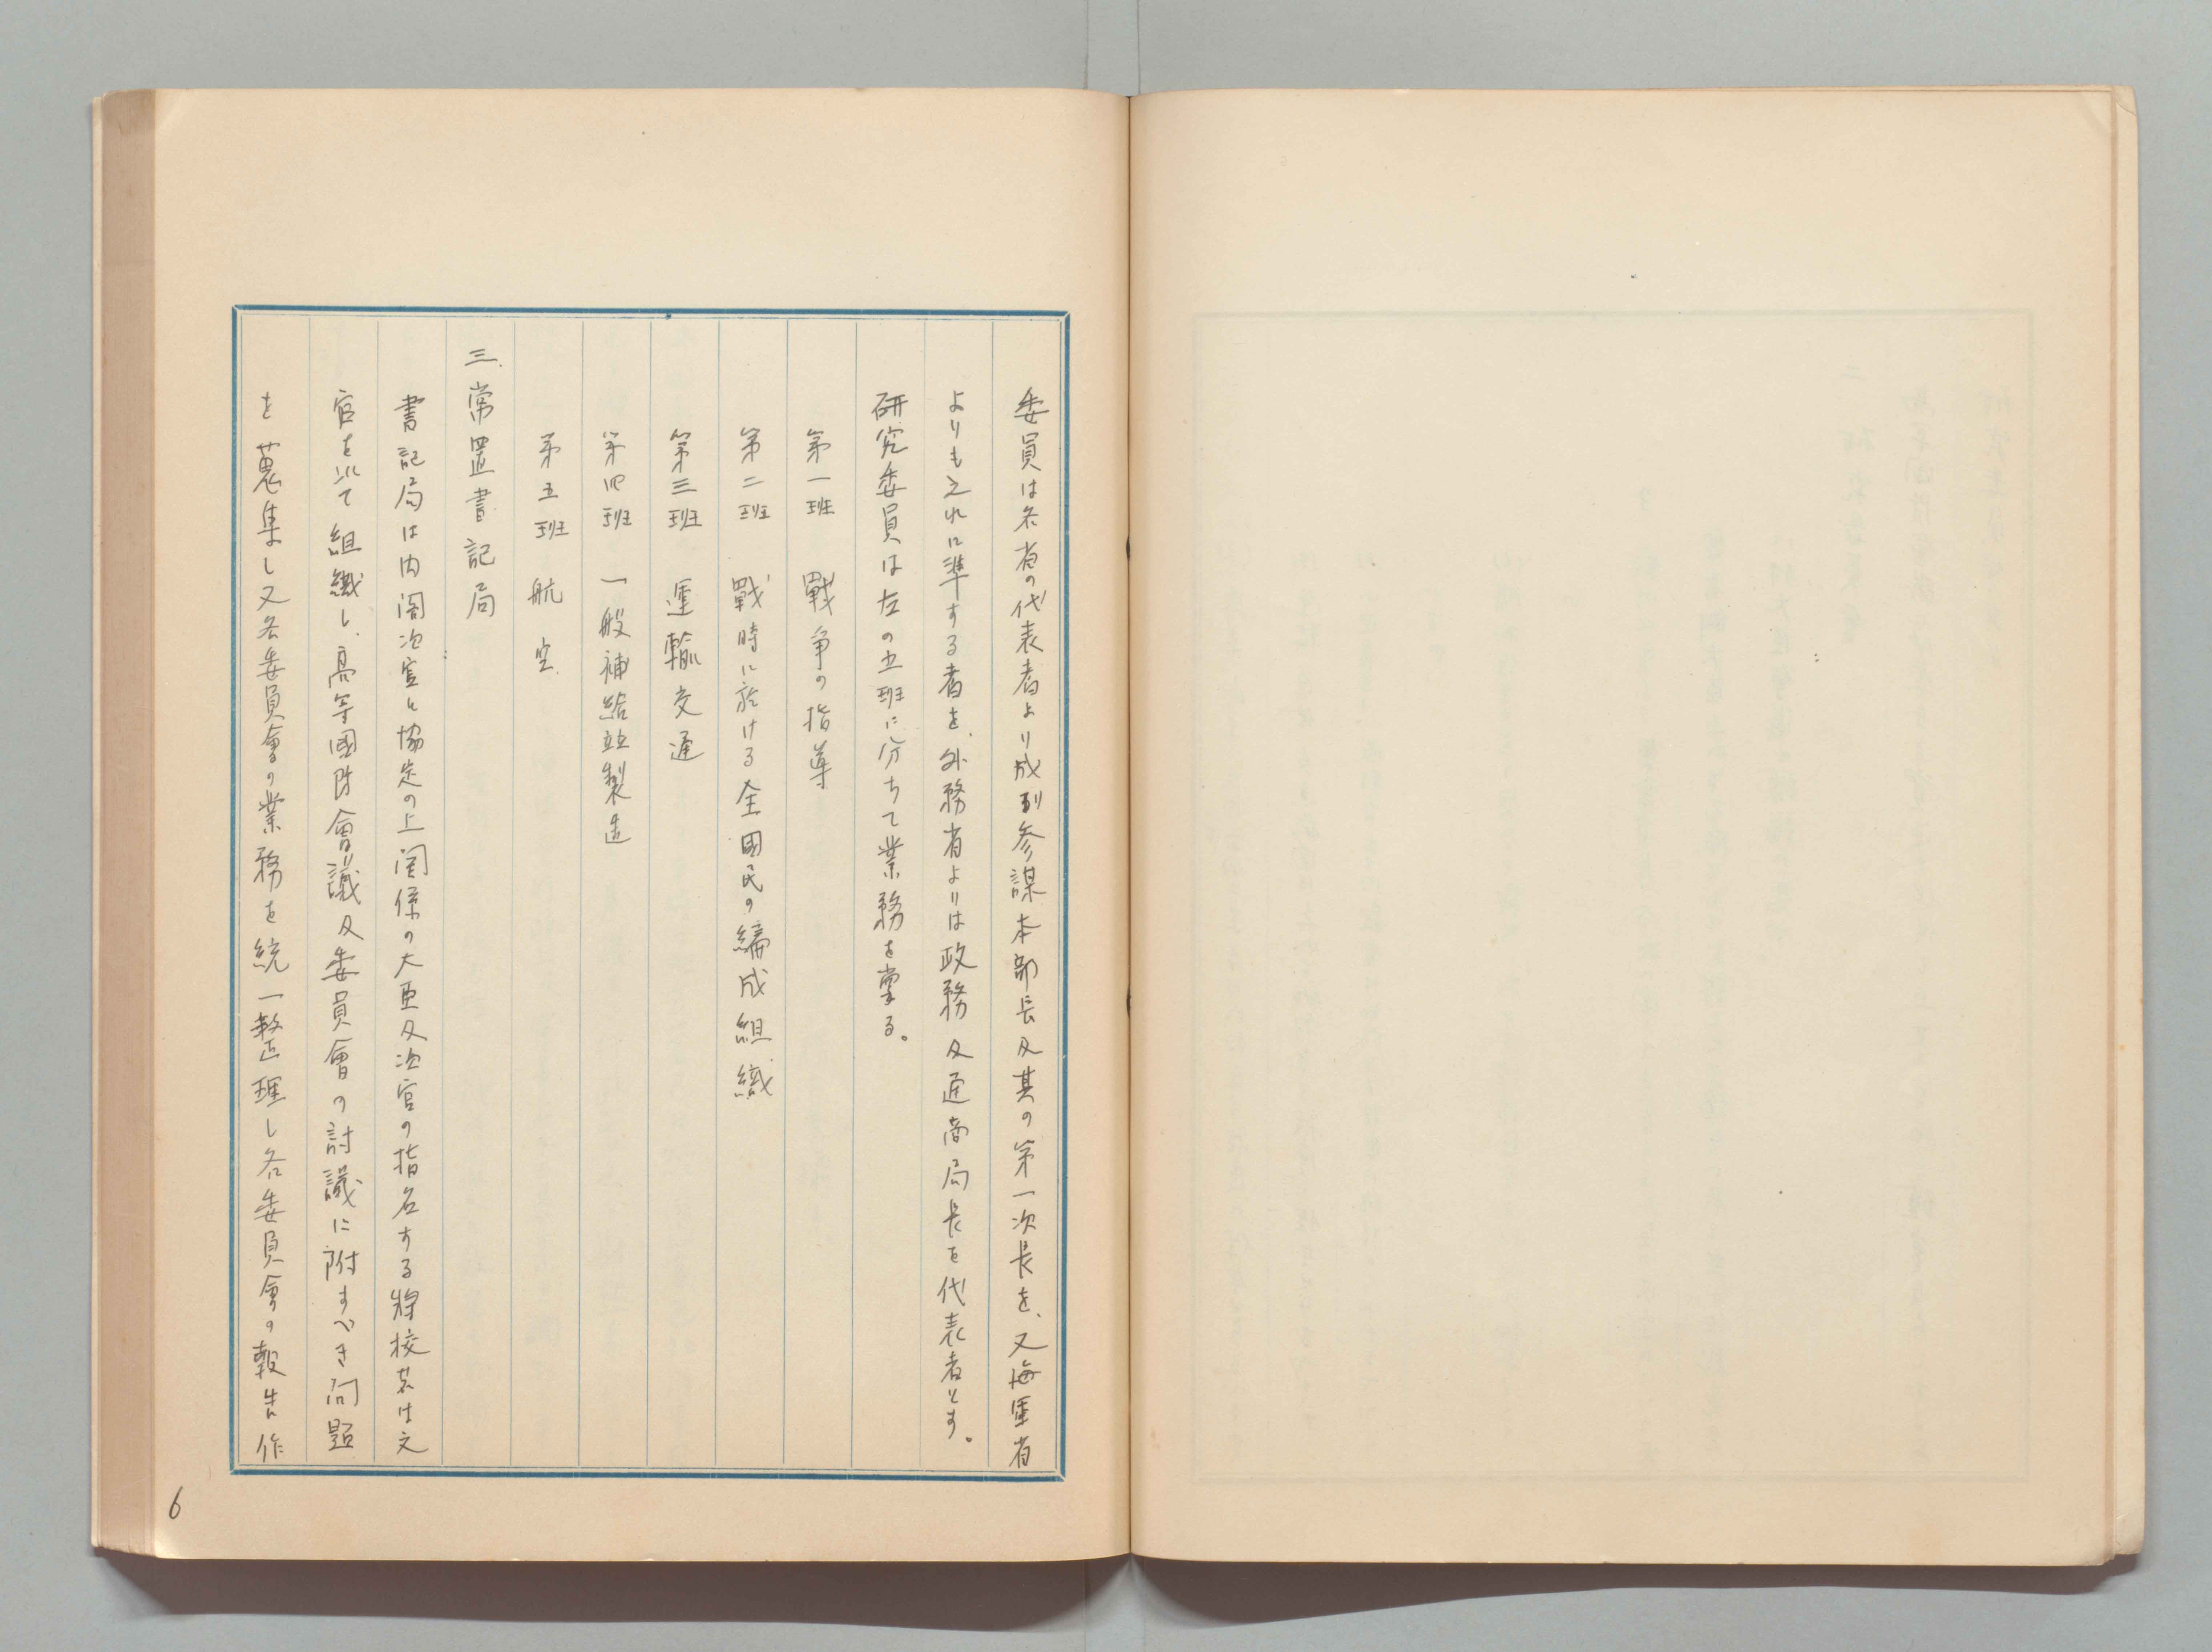 委員は各省の代表者より成列参謀本部長及其の第一次長を、又海軍省
よりも之れに準する者を、外務省よりは政務及通商局長を代表者とす。
研究委員は左の五班に分ちて業務を掌る。
第一班 戰争の指導
第二班 戰時に於ける全國民の編成組織
第三班 運輸交通
第四班 一般補給並製造
第五班 航空
三、常置書記局
書記局は内閣次官と協定の上関係の大臣及次官の指名する将校若は文
官を以て組織し、高等國防會議及委員會の討議に附すべき问題
を蒐集し又各委員會の業務を統一整理し各委員會の報告作
6